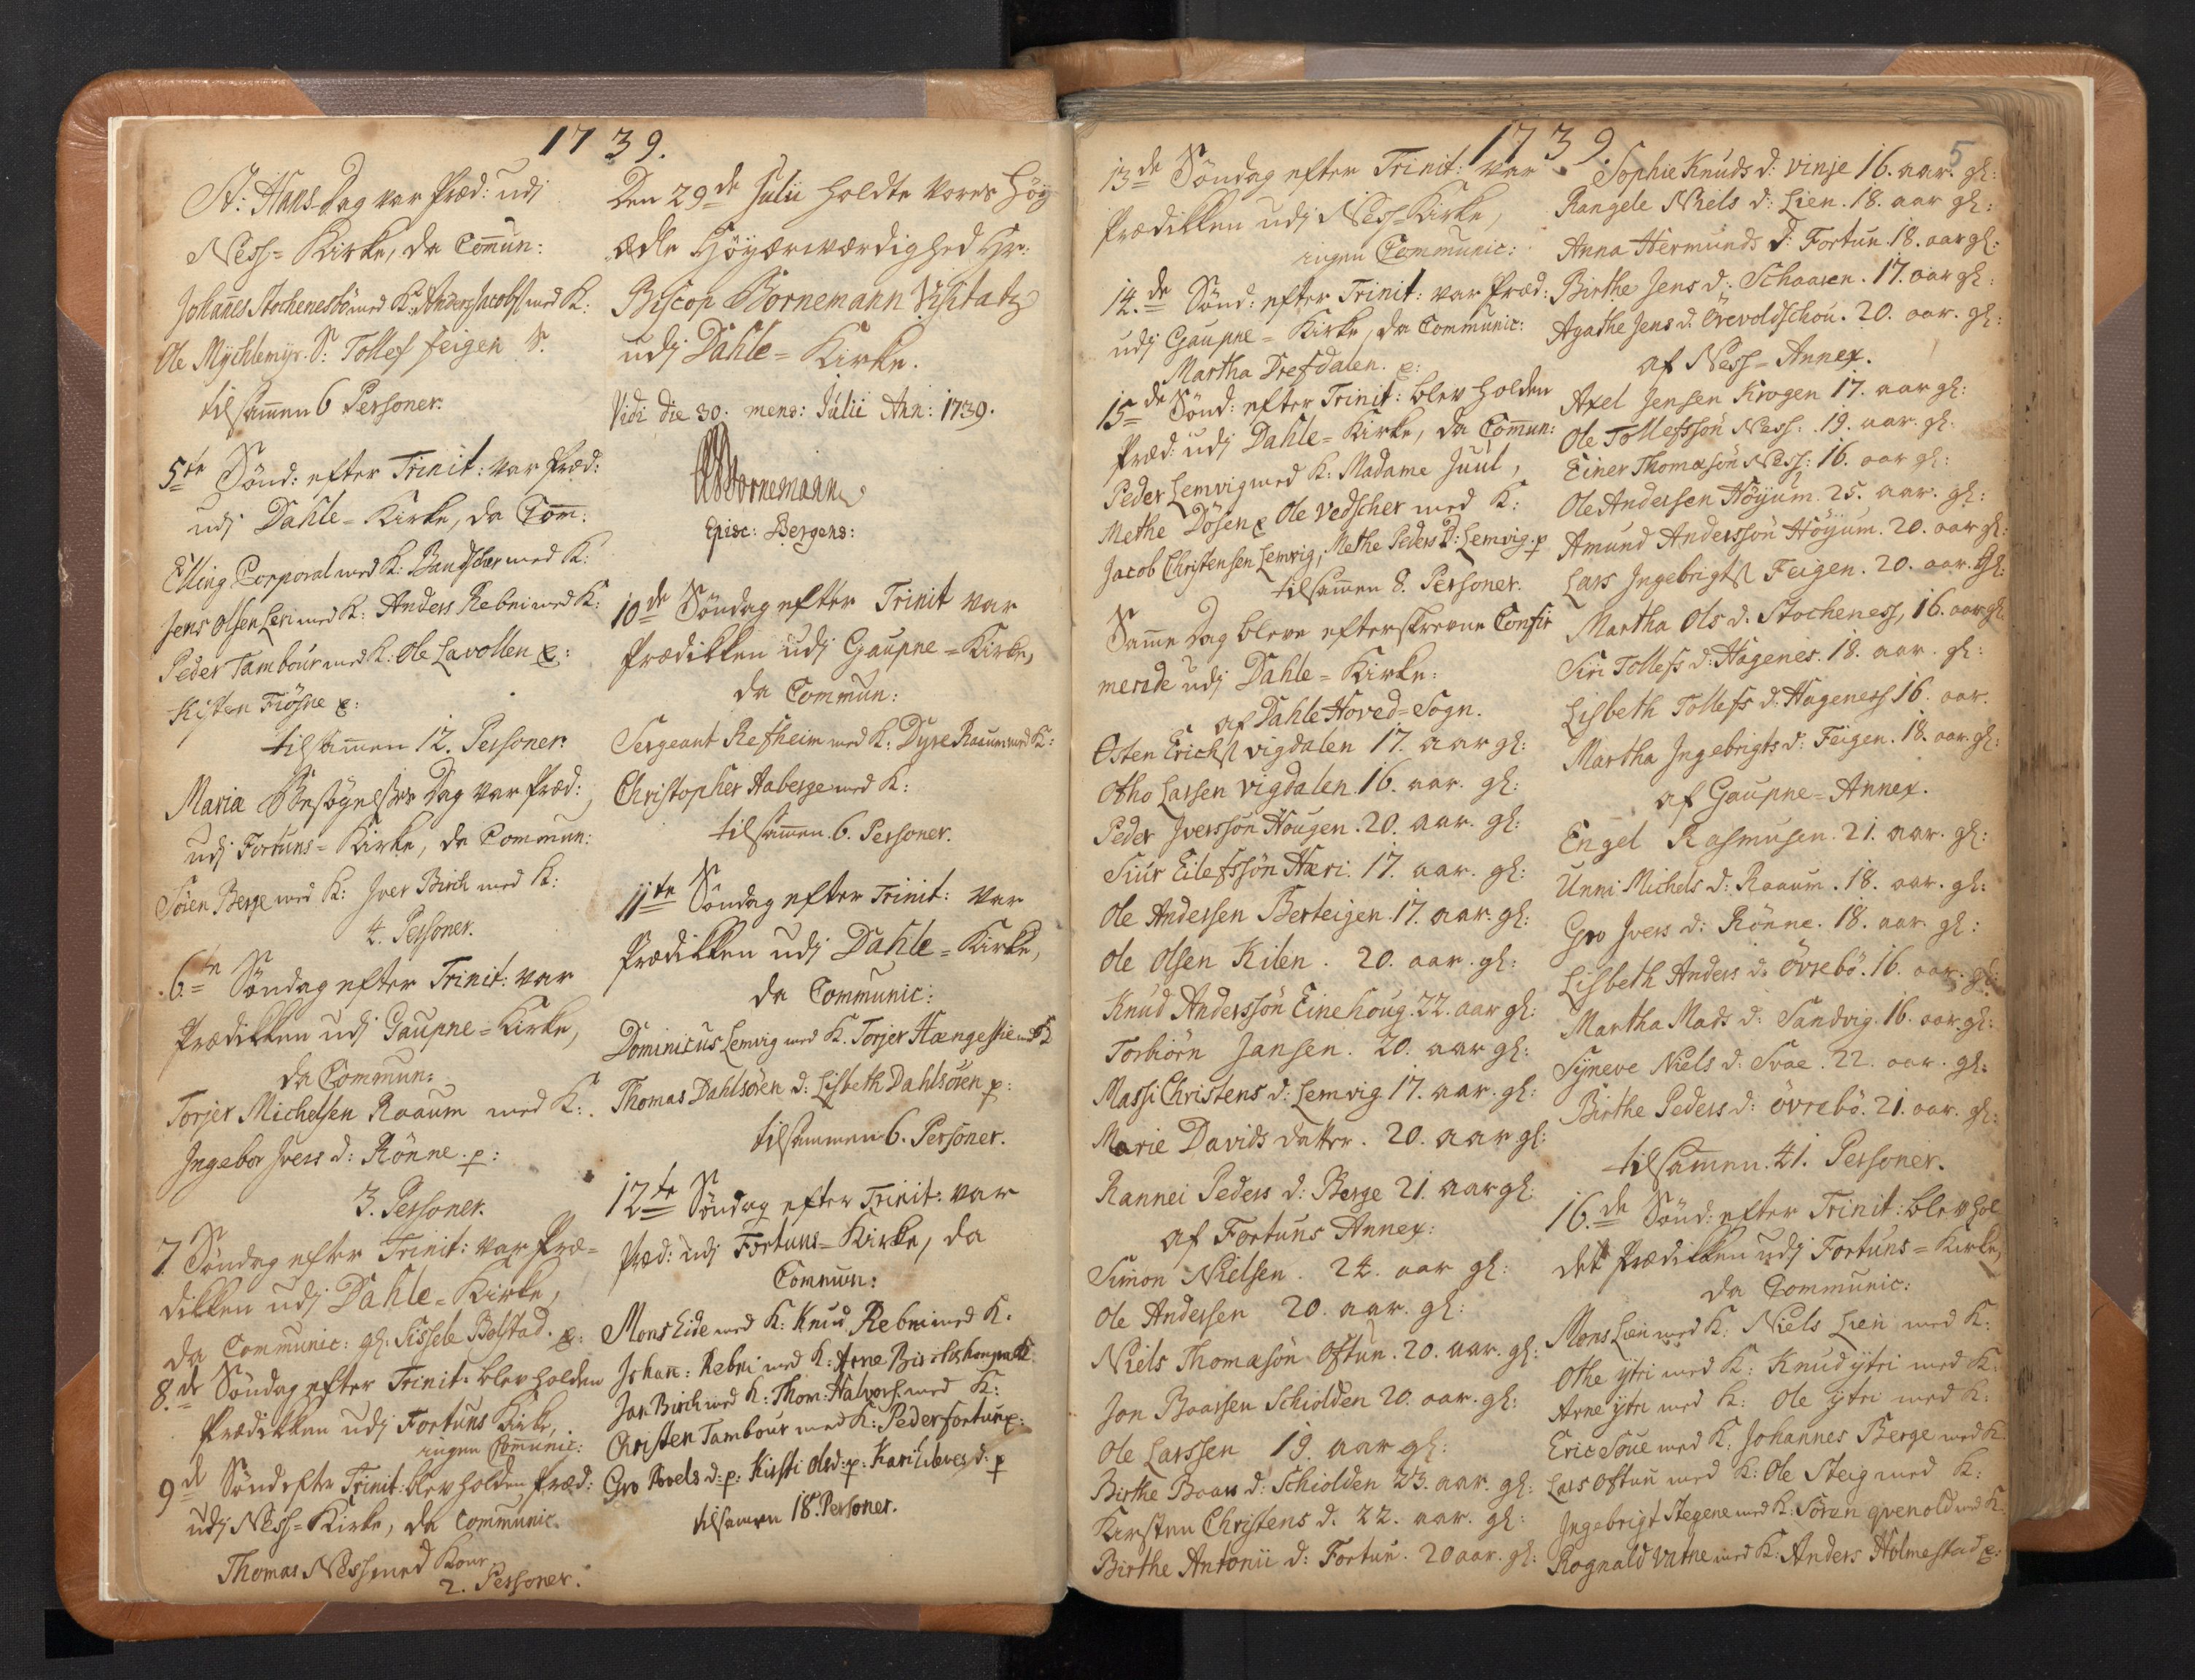 1739.
St: Hans Dag var Præd: udj
Ness=Kirke, da Comun:
Johanes Stochenesbö med K: Anders Jacobs med K:
Ole Mychlemyr. S: Tollef feigen S.
tilsamen 6 Personer.
5te Sönd: efter Trinit: var Præd:
udj Dahle=Kirke, da Com:
Elling Corporal med K: med K:
Jens Olsen Leri med K: Anders Rebni med K:
Peder Tambour med K: Ole Lavollen
Kisten Fiösne
tilsamen 12. Personer.
Maria Besögelses Dag var Præd:
udj Fortuns=Kirke, da Commun:
Sören Berge med K: Iver Birch med K:
4. Personer.
6te Söndag efter Trinit: var
Prædikken udj Gaupne=Kirke,
da Commun:
Torjer Michelsen Raaum med K:
Ingebor Ivers d: Rönne. p:
3. Personer.
7. Söndag efter Trinit: var Præ=
dikken udj Dahle=Kirke,
da Communic: gl: Sissele Bolstad.
8.de Söndag efter Trinit: blev holden
Prædikken udj Fortuns Kirke,
ingen Comunic:
9de Sönd efter Trinit: blev holden Præd:
udj Ness=Kirke, da Communic.
Thomas Ness med Kone
2. Personer.
Den 29de Julii holdte Vores Höy
ædle Höyærværdighed Hr:
Biscop Bornemann Visitatz
udj Dahle=Kirke.
Vidi die 30. mens: Julii Ann: 1739.
Bornemann
Episc: Bergens:
10de Söndag efter Trinit var
Prædikken udj Gaupne=Kirke,
da Commun:
Sergeant Refheim med K: Dyre Raaum med K:
Christopher Aaberge med K:
tilsamen. 6. Personer.
11te Söndag efter Trinit: var
Prædikken udj Dahle=Kirke,
da Communic:
Dominicus Lemvig med K. Torjer med K
Thomas Dahlsören d: Lisbeth Dahlsören p:
tilsammen 6. Personer.
12te Söndag efter Trinit: var
Præd: udj Fortuns=Kirke, da
Commun:
Mons Eide med K: Knud Rebni med K.
Johan: Rebni med K: Arne med K
Jan Birch med K: Thom: Halvors. med K:
Christen Tambour med K: Peder fortun
Gro Povels d: p: Kirsti Olsd: p: Kari d: p
tilsamen 18. Personer.
1739. 5
13de Söndag efter Trinit: var
Prædikken udj Ness=Kirke,
ingen Communic:
14.de Sönd: efter Trinit: var Præd:
udj Gaupne=Kirke, da Communic:
Martha Drefdalen.
15de Sönd: efter Trinit: blev holden
Præd: udj Dahle=Kirke, da Comun:
Peder Lemvig med K: Madame Juul,
Methe Dösen Ole Vedscher med K:
Jacob Christensen Lemvig, Methe Peders D: Lemvig. p
tilsamen 8. Personer.
Same Dag bleve efterskrevne Confir
merede udj Dahle=Kirke:
af Dahle Hoved=Sogn.
Østen Ericks vigdalen 17. aar gl:
Otho Larsen vigdalen 16. aar. gl:
Peder Iversson Hougen. 20. aar. gl:
Siur Eilefssön Hæri. 17. aar. gl:
Ole Andersen Berteigen. 17. aar. gl:
Ole Olsen Kilen. 20. aar. gl:
Knud Anderssön Einehoug. 22. aar gl:
Torbiörn Jansen. 20. aar gl:
Massi Christens d: Lemvig. 17. aar. gl:
Marie Davids datter. 20. aar gl:
Rannei Peders d: Berge 21. aar gl:
af Fortuns Annex:
Simon Nielsen. 24. aar gl:
Ole Andersen 20. aar. gl:
Niels Thomasön Oftun. 20. aar. gl:
Jon Baarsen Schiolden 20. aar. gl:
Ole Larssen 19. aar gl:
Birthe Baars d: Schiolden 23. aar. gl:
Kirsten Christens d. 22. aar. gl:
Birthe Antonii d: Fortun. 20 aar. gl:
Sophie Knuds d: vinje 16. aar. gl:
Rangele Niels d: Lien. 18. aar gl:
Anna Hermunds d: Fortun. 18. aar gl:
Birthe Jens d: Schaaren. 17. aar gl:
Agathe Jens d. 20. aar. gl:
af Ness=Annex.
Axel Jensen Krogen 17. aar gl:
Ole Tollefssön Ness. 19. aar. gl.
Einer Thomasön Ness: 16. aar gl:
Ole Andersen Höyum. 25. aar. gl:
Amund Anderssön Höyum. 20. aar gl:
Lars Ingebrigts Feigen. 20. aar. gl:
Martha Ols d: Stocheness, 16. aar gl:
Siri Tollefs d: Hagenes. 18. aar. gl:
Lisbeth Tollefs d: Hageness 16. aar.
Martha Ingebrigts d: Feigen. 18. aar. gl:
af Gaupne=Annex.
Engel Rasmusen. 21. aar. gl:
Unni Michels d: Raaum. 18. aar. gl:
Gro Ivers d: Rönne. 18. aar. gl:
Lisbeth Anders d: Övrebö. 16. aar. gl:
Martha Mads d: Sandvig. 16. aar. gl:
Syneve Niels d: Svae. 22. aar. gl:
Birthe Peders d: Övrebö. 21. aar. gl:
tilsamen. 41. Personer.
16.de Sönd: efter Trinit: blev hol
det Prædikken udj Fortuns=Kirke,
da Communic:
Mons Lien med K: Niels Lien med K:
Othe ytri med K: Knud ytri med K.
Arne ytri med K: Ole ytri med K:
Eric Soue med K: Johannes Berge med K.
Lars Oftun med K: Ole Steig med K:
Ingebrigt Stegene med K: Sören qvenold med K
Rognald Vatne med K: Anders Holmestad